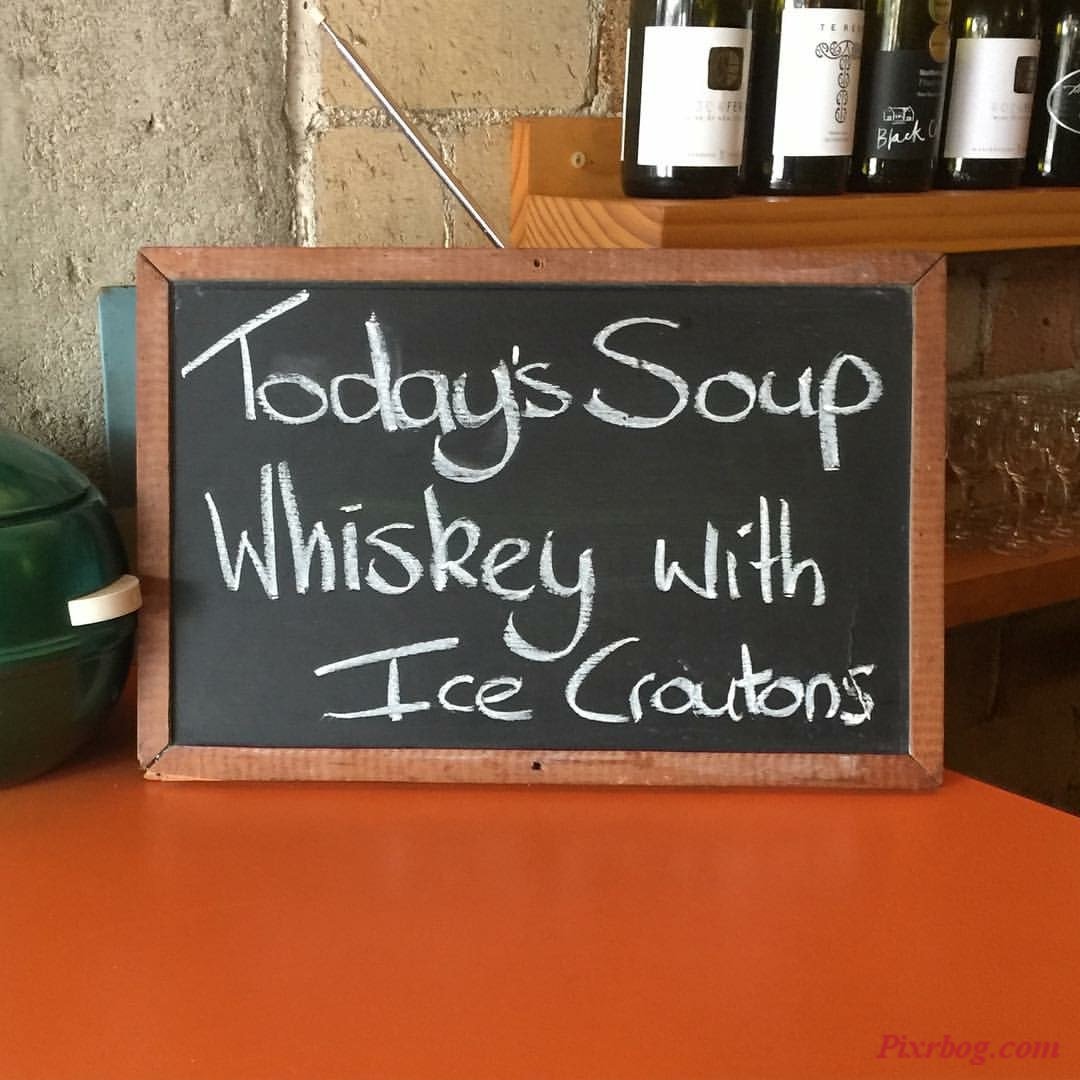 TE RE
Black
Today's Soup
Whiskey with
Ice Croutons
Pixrbog.com